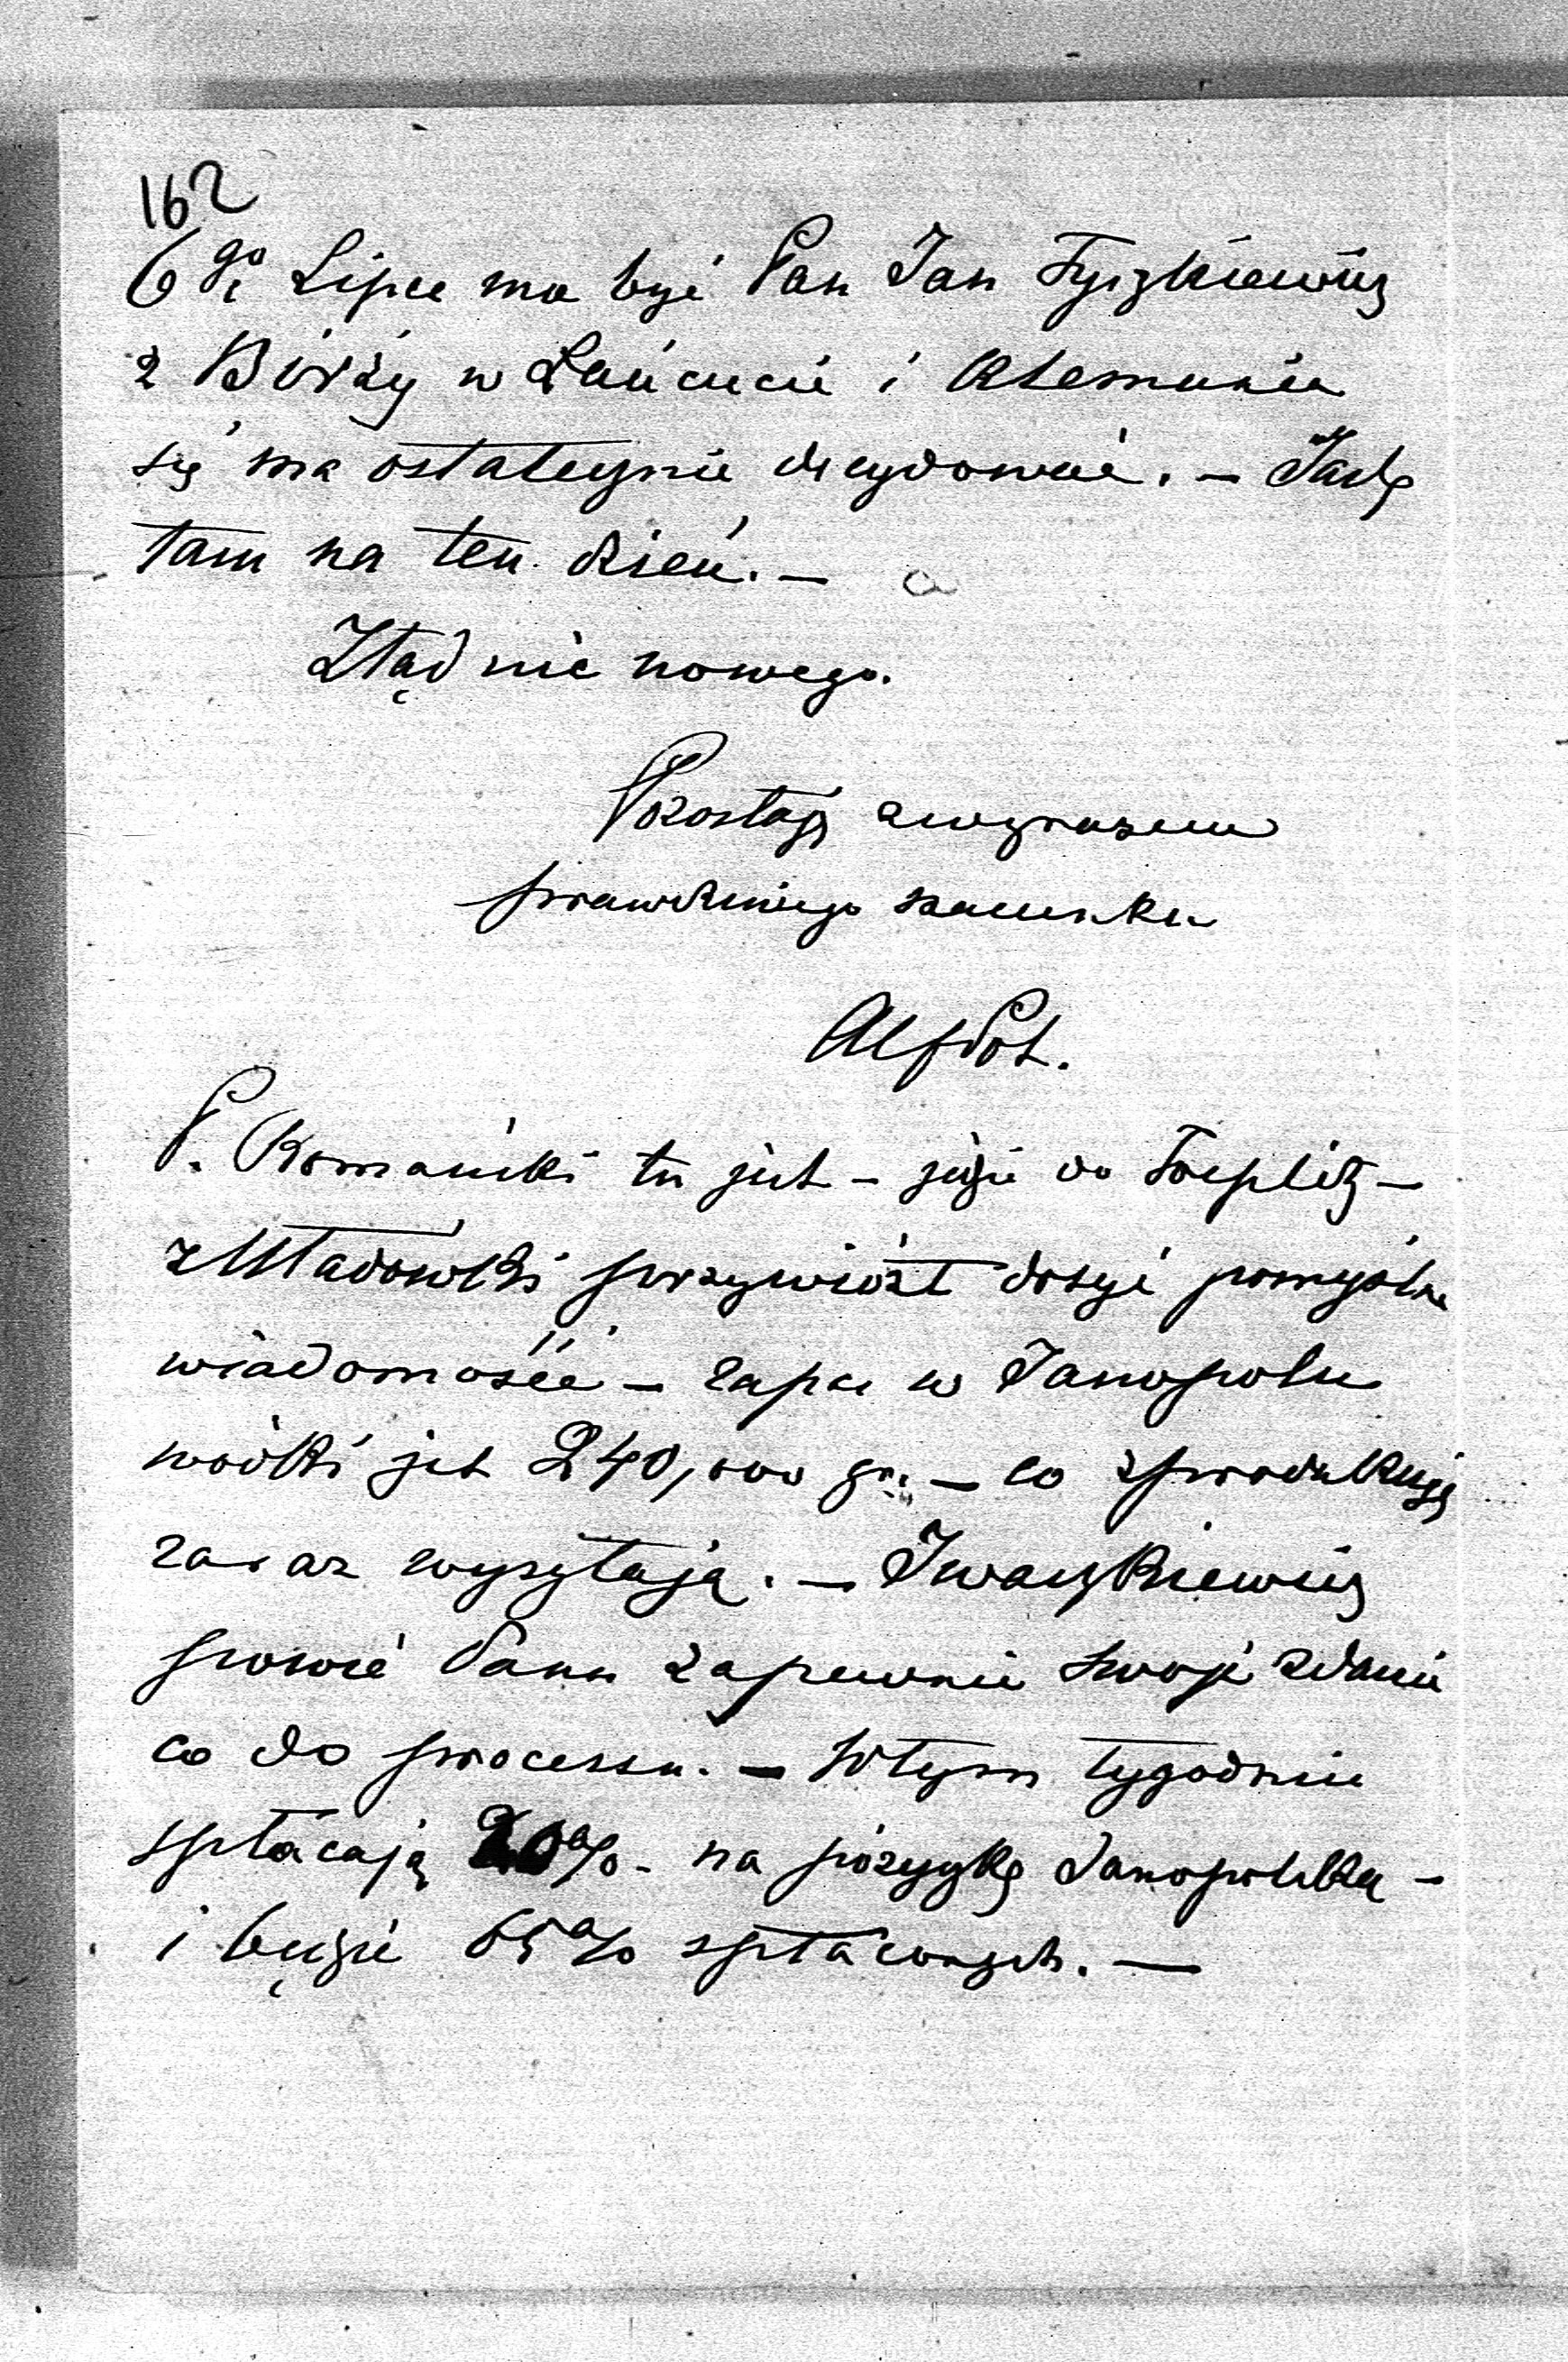 162
6go Lipca ma być Pan Jan Tyszkiewicz
z Birży w Łańcucie i
się ma ostatecznie decydować. – Jadę
tam na ten dzień. –
Ztąd nic nowego.
Pozostaję z wyrazem
prawdziwego szacunku
Alf Pot.
P. Komanicki tu jest – jedzie do Toeplitz –
z Uładówki przywiózł dosyć pomyślne
wiadomości – zapas w Janopolu
wódki jest 240,000 gr. – co zprodukują
zaraz wysyłają. – Iwaszkiewicz
powie Panu zapewnie swoje zdanie
co do processu. – W tym tygodniu
spłacają 20% – na pożyczkę Janopolską –
i będzie 65% spłaconych. –